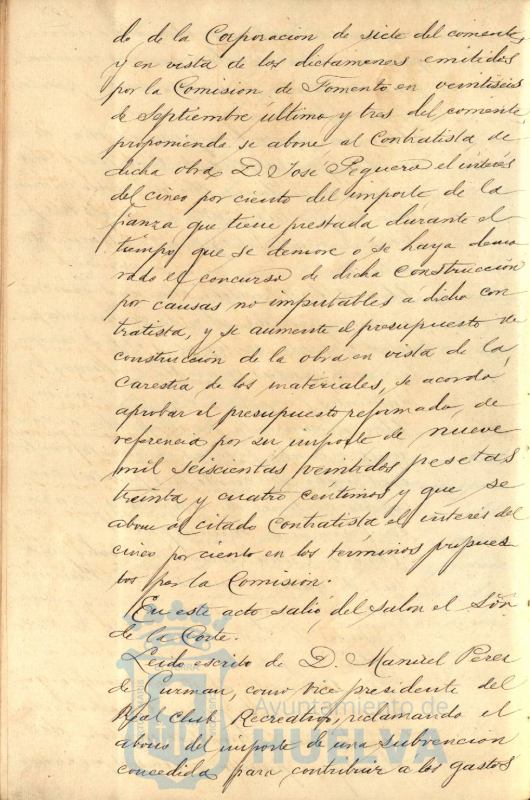 do de la Corporacion de siete del corriente,
y en vista de los dictamenes emitidos
por la Comision de Fomento en veintiseis
de Septiembre último y tres del corriente
proponiendo se abone al Contratista de
dicha obra D. José Peguero el interés
del cinco por ciento del importe de la
fianza que tiene prestada durante el
tiempo que se demore ó se haya demo
rado el concurso de dicha construcción
por causas no imputables á dicho con
tratista, y se aumente el presupuesto de
construcción de la obra en vista de la
carestia de los materiales, se acordó
aprobar el presupuesto reformado, de
referencia por su importe de nueve
mil seiscientas veintidos pesetas
treinta y cuatro céntimos y que se
abone al citado contratista el interés del
cinco por ciento en los términos propues
tos por la Comision.
En este acto salió del salon el Sõr
de la Corte.
Leido escrito de D. Manuel Perez
de Guzman, como Vice presidente del
Real Club Recreativo, reclamando el
abono del importe de una subvencion
concedida para contribuir a los gastos
Ayuntamiento de
HUELVA